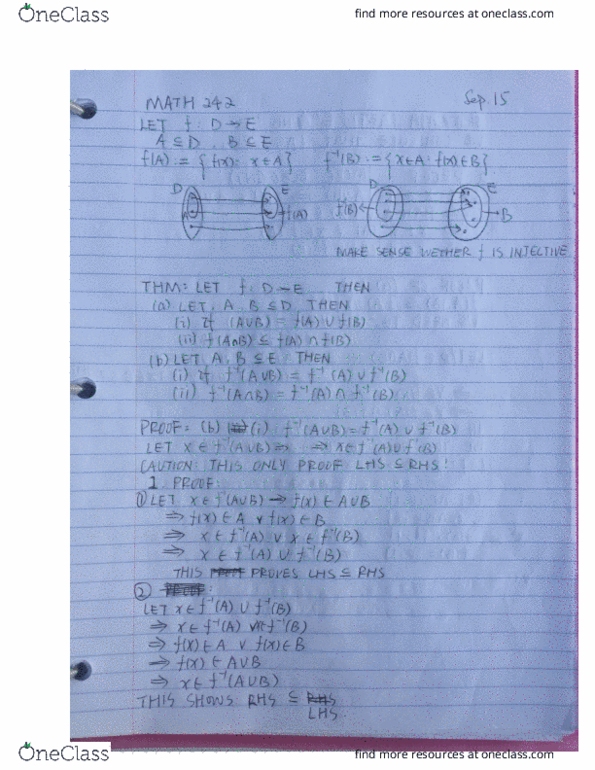 OneClass
find more resources at oneclass.com
MATH 242 Sep. 15
LET f: D → E
A ⊆ D, B ⊆ E
f(A) := {f(x): x ∈ A} f⁻¹(B) := {x ∈ A: f(x) ∈ B}
D E f(A) D E f⁻¹(B) B
MAKE SENSE WETHER f IS INJECTIVE
THM: LET f: D → E THEN
(a) LET A, B ⊆ D THEN
(i) if (A∪B) = f(A) ∪ f(B)
(ii) f(A∩B) ⊆ f(A) ∩ f(B)
(b) LET A, B ⊆ E THEN
(i) if f⁻¹(A∪B) = f⁻¹(A) ∪ f⁻¹(B)
(ii) f⁻¹(A∩B) = f⁻¹(A) ∩ f⁻¹(B)
PROOF: (b) (i) f⁻¹(A∪B) = f⁻¹(A) ∪ f⁻¹(B)
LET x ∈ f⁻¹(A∪B) ⇒ ⇒ x ∈ f⁻¹(A) ∪ f⁻¹(B)
CAUTION: THIS ONLY PROOF LHS ⊆ RHS!
1. PROOF:
① LET x ∈ f⁻¹(A∪B) → f(x) ∈ A∪B
⇒ f(x) ∈ A ∨ f(x) ∈ B
⇒ x ∈ f⁻¹(A) ∨ x ∈ f⁻¹(B)
⇒ x ∈ f⁻¹(A) ∪ f⁻¹(B)
THIS PROOF PROVES LHS ⊆ RHS
② PROOF:
LET x ∈ f⁻¹(A) ∪ f⁻¹(B)
⇒ x ∈ f⁻¹(A) ∨ x ∈ f⁻¹(B)
⇒ f(x) ∈ A ∨ f(x) ∈ B
⇒ f(x) ∈ A∪B
⇒ x ∈ f⁻¹(A∪B)
THIS SHOWS RHS ⊆ RHS
LHS.
OneClass
find more resources at oneclass.com